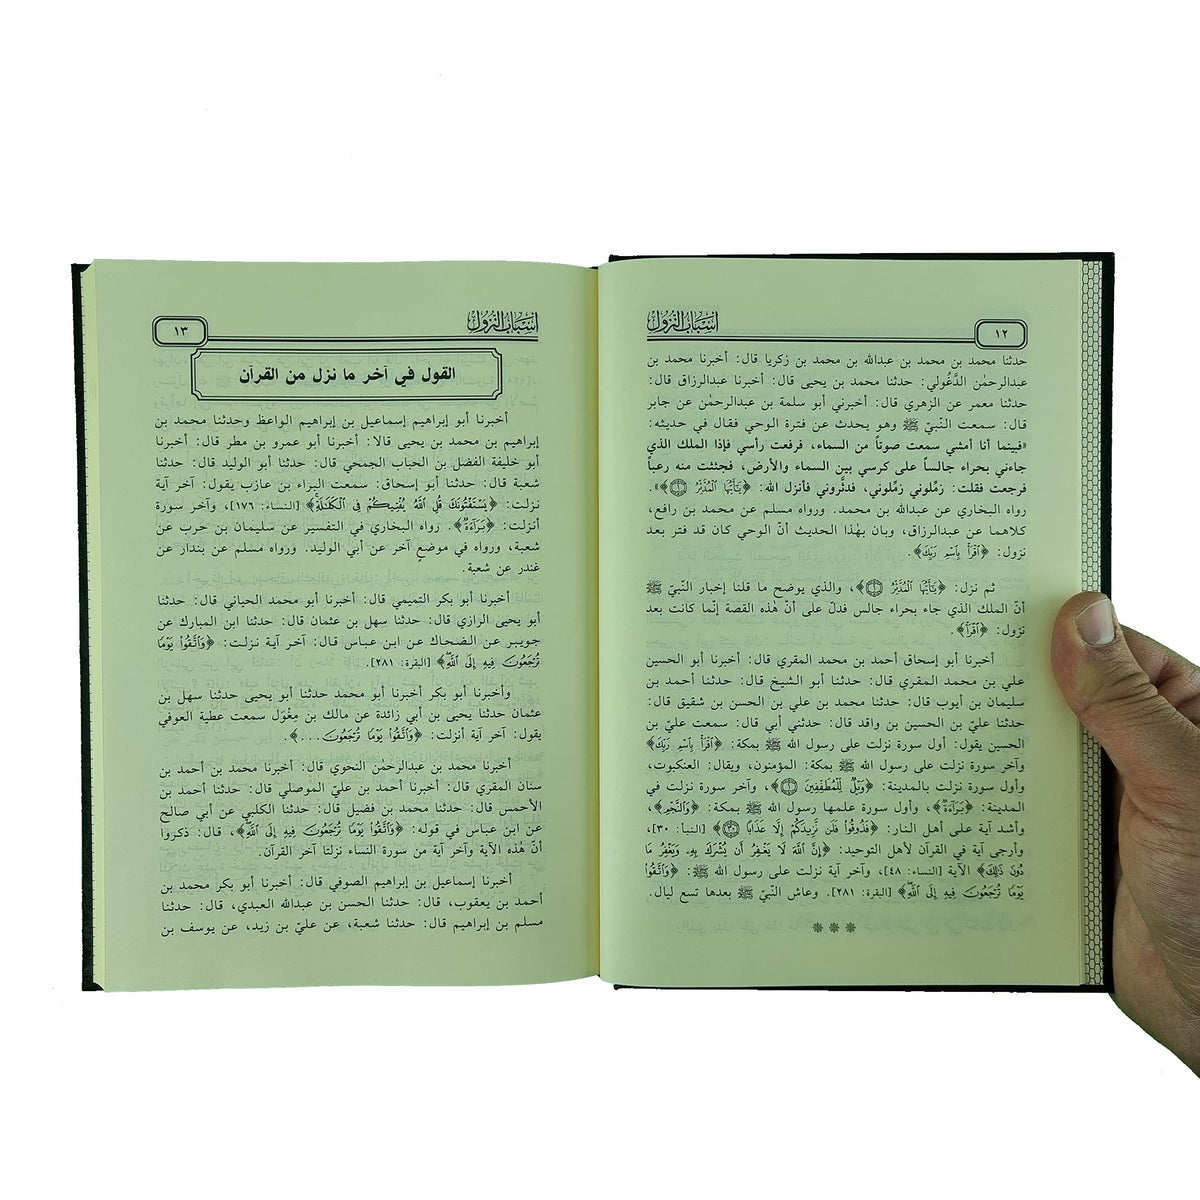 ١٢
أسباب النزول
حدثنا محمد بن محمد بن عبدالله بن محمد بن زكريا قال: أخبرنا محمد بن
عبدالرحمٰن الدَّغُولي: حدثنا محمد بن يحيى قال: أخبرنا عبدالرزاق قال:
حدثنا معمر عن الزهري قال: أخبرني أبو سلمة بن عبدالرحمٰن عن جابر
قال: سمعت النّبيّ ﷺ وهو يحدث عن فترة الوحي فقال في حديثه:
«فبينما أنا أمشي سمعت صوتاً من السماء، فرفعت رأسي فإذا الملك الذي
جاءني بحراء جالساً على كرسي بين السماء والأرض، فجئثت منه رعباً
فرجعت فقلت: زمِّلوني زمِّلوني، فدثَّروني فأنزل الله: ﴿يَٰٓأَيُّهَا ٱلْمُدَّثِّرُ ۝١﴾».
رواه البخاري عن عبدالله بن محمد. ورواه مسلم عن محمد بن رافع،
كلاهما عن عبدالرزاق، وبان بهٰذا الحديث أنّ الوحي كان قد فتر بعد
نزول: ﴿ٱقْرَأْ بِٱسْمِ رَبِّكَ﴾.
ثم نزل: ﴿يَٰٓأَيُّهَا ٱلْمُدَّثِّرُ ۝١﴾، والذي يوضح ما قلنا إخبار النّبيّ ﷺ
أنّ الملك الذي جاء بحراء جالس فدلّ على أنّ هٰذه القصة إنّما كانت بعد
نزول: ﴿ٱقْرَأْ﴾.
أخبرنا أبو إسحاق أحمد بن محمد المقري قال: أخبرنا أبو الحسين
علي بن محمد المقري قال: حدثنا أبو الشيخ قال: حدثنا أحمد بن
سليمان بن أيوب قال: حدثنا محمد بن علي بن الحسن بن شقيق قال:
حدثنا عليّ بن الحسين بن واقد قال: حدثني أبي قال: سمعت عليّ بن
الحسين يقول: أول سورة نزلت على رسول الله ﷺ بمكة: ﴿ٱقْرَأْ بِٱسْمِ رَبِّكَ﴾
وآخر سورة نزلت على رسول الله ﷺ بمكة: المؤمنون، ويقال: العنكبوت،
وأول سورة نزلت بالمدينة: ﴿وَيْلٌ لِّلْمُطَفِّفِينَ ۝١﴾، وآخر سورة نزلت في
المدينة: ﴿بَرَآءَةٌ﴾، وأول سورة علمها رسول الله ﷺ بمكة: ﴿وَٱلنَّجْمِ﴾،
وأشد آية على أهل النار: ﴿فَذُوقُوا۟ فَلَن نَّزِيدَكُمْ إِلَّا عَذَابًا ۝٣٠﴾ [النبأ: ٣٠]،
وأرجى آية في القرآن لأهل التوحيد: ﴿إِنَّ ٱللَّهَ لَا يَغْفِرُ أَن يُشْرَكَ بِهِۦ وَيَغْفِرُ مَا
دُونَ ذَٰلِكَ﴾ الآية [النساء: ٤٨]، وآخر آية نزلت على رسول الله ﷺ: ﴿وَٱتَّقُوا۟
يَوْمًا تُرْجَعُونَ فِيهِ إِلَى ٱللَّهِ﴾ [البقرة: ٢٨١]. وعاش النّبيّ ﷺ بعدها تسع ليال.
***
أسباب النزول
١٣
القول في آخر ما نزل من القرآن
أخبرنا أبو إبراهيم إسماعيل بن إبراهيم الواعظ وحدثنا محمد بن
إبراهيم بن محمد بن يحيى قالا: أخبرنا أبو عمرو بن مطر قال: أخبرنا
أبو خليفة الفضل بن الحباب الجمحي قال: حدثنا أبو الوليد قال: حدثنا
شعبة قال: حدثنا أبو إسحاق: سمعت البراء بن عازب يقول: آخر آية
نزلت: ﴿يَسْتَفْتُونَكَ قُلِ ٱللَّهُ يُفْتِيكُمْ فِى ٱلْكَلَٰلَةِ﴾ [النساء: ١٧٦]، وآخر سورة
أنزلت: ﴿بَرَآءَةٌ﴾. رواه البخاري في التفسير عن سليمان بن حرب عن
شعبة، ورواه في موضعٍ آخر عن أبي الوليد. ورواه مسلم عن بندار عن
غندر عن شعبة.
أخبرنا أبو بكر التميمي قال: أخبرنا أبو محمد الحياني قال: حدثنا
أبو يحيى الرازي قال: حدثنا سهل بن عثمان قال: حدثنا ابن المبارك عن
جويبر عن الضحاك عن ابن عباس قال: آخر آية نزلت: ﴿وَٱتَّقُوا۟ يَوْمًا
تُرْجَعُونَ فِيهِ إِلَى ٱللَّهِ﴾ [البقرة: ٢٨١].
وأخبرنا أبو بكر أخبرنا أبو محمد حدثنا أبو يحيى حدثنا سهل بن
عثمان حدثنا يحيى بن أبي زائدة عن مالك بن مِغْوَل سمعت عطية العوفي
يقول: آخر آية أنزلت: ﴿وَٱتَّقُوا۟ يَوْمًا تُرْجَعُونَ...﴾.
أخبرنا محمد بن عبدالرحمٰن النحوي قال: أخبرنا محمد بن أحمد بن
سنان المقري قال: أخبرنا أحمد بن عليّ الموصلي قال: حدثنا أحمد بن
الأحمس قال: حدثنا محمد بن فضيل قال: حدثنا الكلبي عن أبي صالح
عن ابن عباس في قوله: ﴿وَٱتَّقُوا۟ يَوْمًا تُرْجَعُونَ فِيهِ إِلَى ٱللَّهِ﴾، قال: ذكروا
أنّ هٰذه الآية وآخر آية من سورة النساء نزلتا آخر القرآن.
أخبرنا إسماعيل بن إبراهيم الصوفي قال: أخبرنا أبو بكر محمد بن
أحمد بن يعقوب، قال: حدثنا الحسن بن عبدالله العبدي، قال: حدثنا
مسلم بن إبراهيم قال: حدثنا شعبة، عن عليّ بن زيد، عن يوسف بن